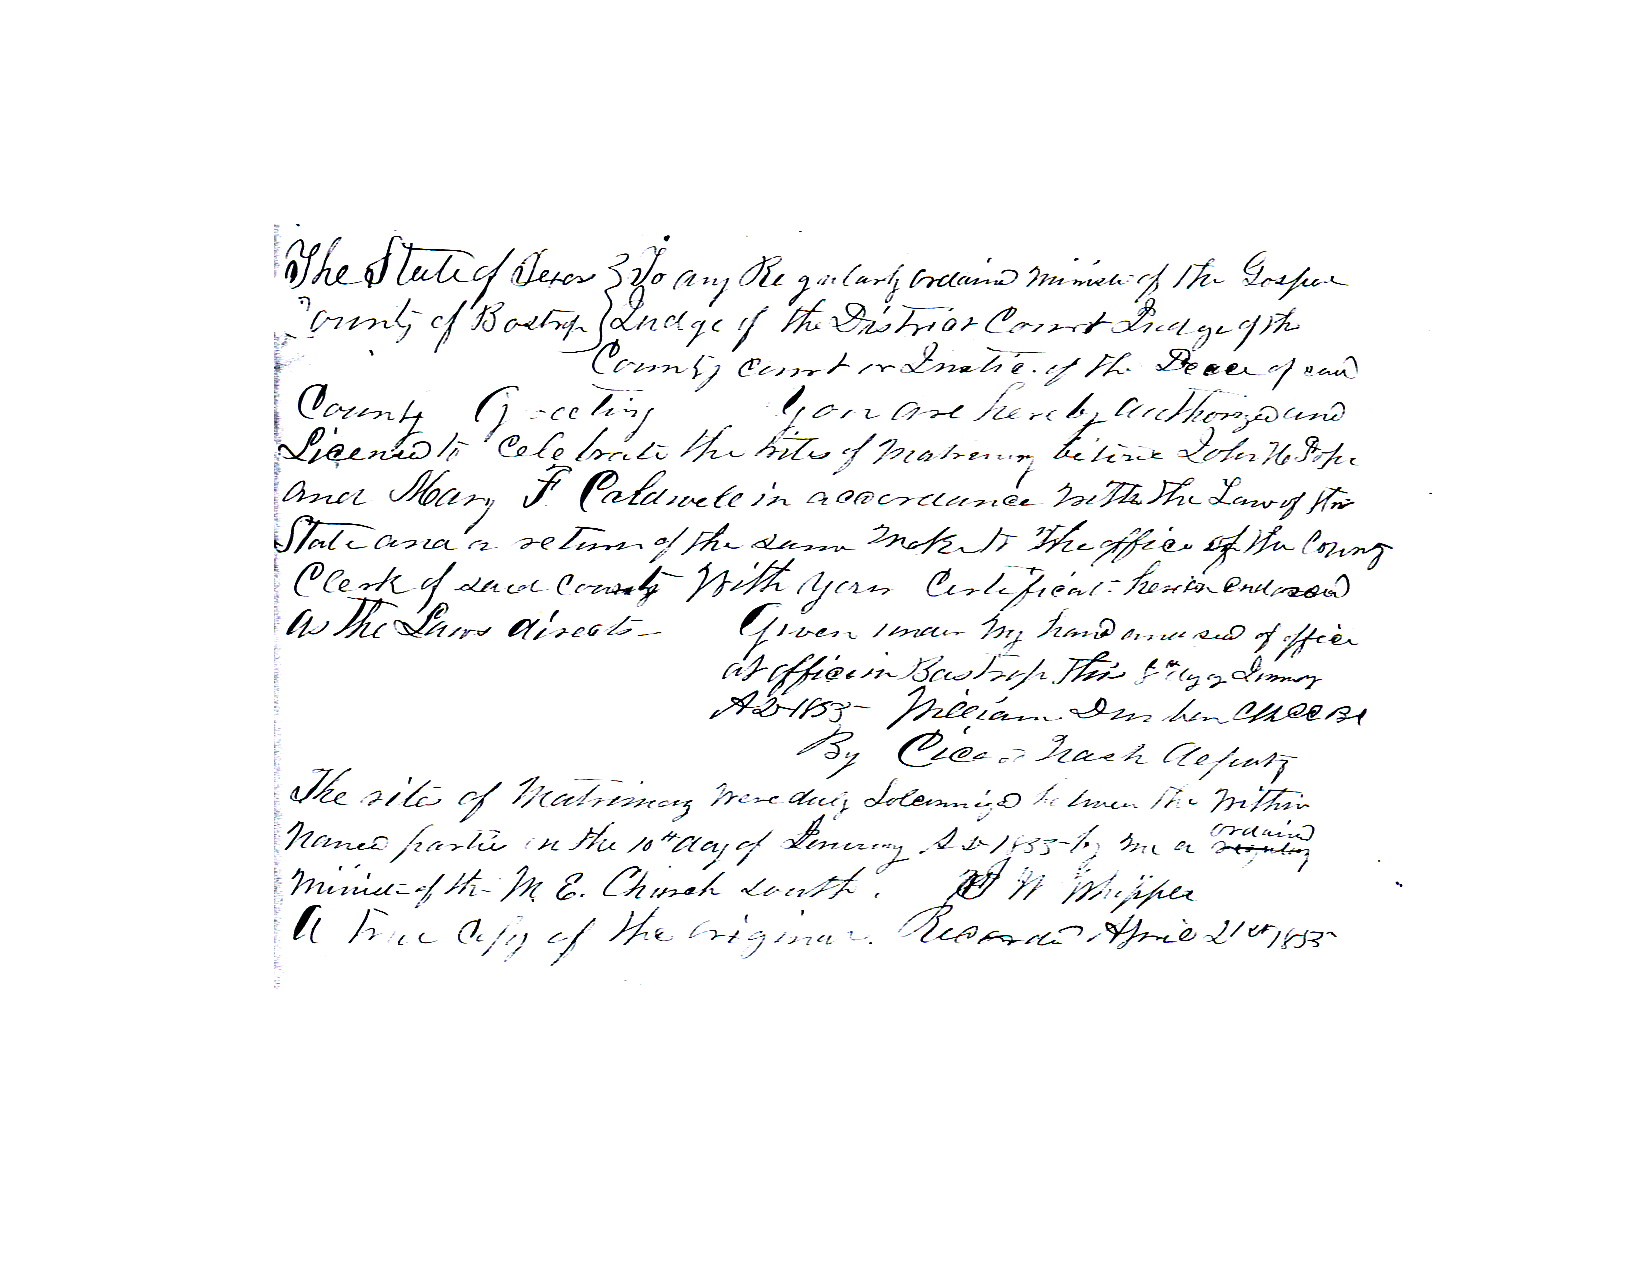 The State of Texas } To any Regularly ordained Minister of the Gospel
County of Bastrop } Judge of the District Court Judge of the
County court or Justice of the Peace of said
County Greeting You are hereby authorized and
Licensed to Celebrate the rites of Matrimony between John H Pope
and Mary F. Caldwell in accordance with the Law of the
State and a return of the same Make to the office of the County
Clerk of said County With your Certificate herein endorsed
as the Laws directs — Given under my hand and seal of office
at office in Bastrop this 8th day of January
AD 1855 William Dunbar
By Cicero Nash deputy
The rites of Matrimony were duly Solemnized between the within
Named parties on the 10th day of January AD 1855 by me a ordained
Minister of the M. E. Church South. W Whipple
A True Copy of the original. Recorded April 21st 1855